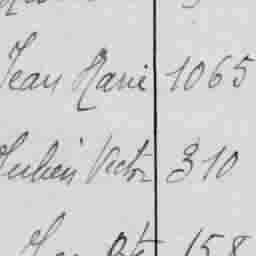 Jean Marie 1065
Julien Victor 310
158